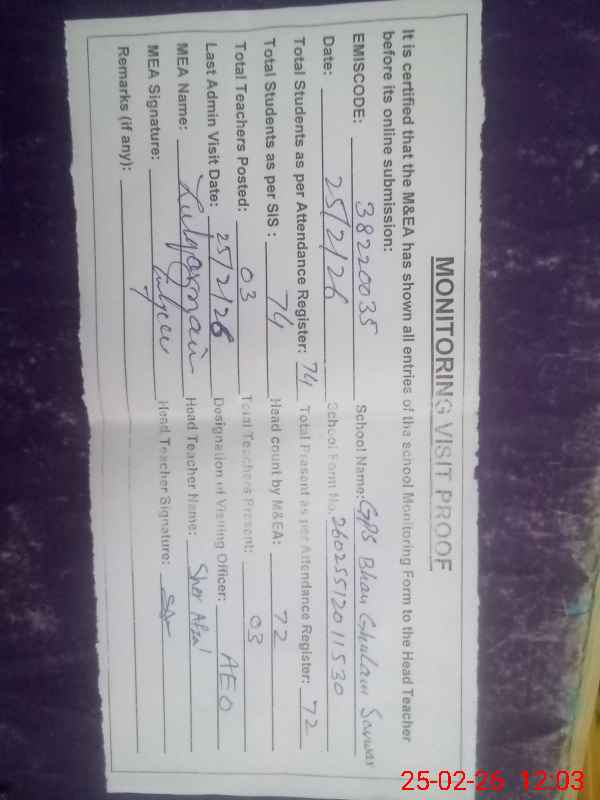 MONITORING VISIT PROOF
It is certified that the M&EA has shown all entries of the school Monitoring Form to the Head Teacher
before its online submission:
EMISCODE: 38220035 School Name: GPS Bhan Ghulam Sarwar
Date: 25/2/26 School Form No. 26025512011530
Total Students as per Attendance Register: 74 Total Present as per Attendance Register: 72
Total Students as per SIS : 74 Head count by M&EA: 72
Total Teachers Posted: 03 Total Teachers Present: 03
Last Admin Visit Date: 25/2/26 Designation of Visiting Officer: AEO
MEA Name: Head Teacher Name: Sher Afzal
MEA Signature: Head Teacher Signature:
Remarks (if any):
25-02-26 12:03